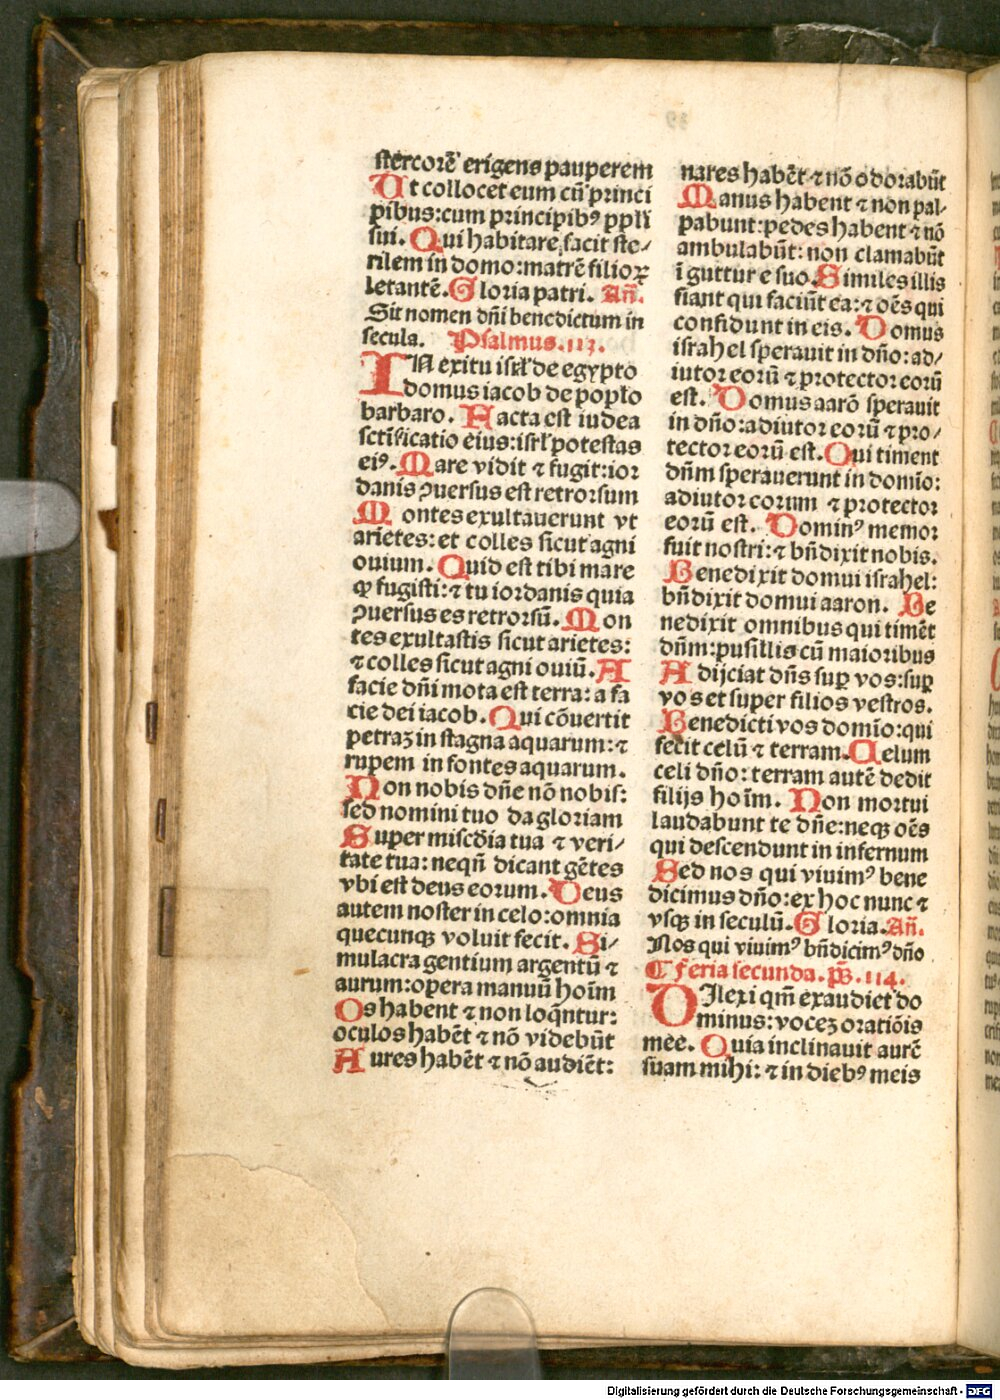 stercorē erigens pauperem
Ut collocet eum cū princi
pibus:cum principibꝰ ppl̄i
sui. Qui habitare facit ste/
rilem in domo:matrē filioꝝ
letantē. Gloria patri. Añ.
Sit nomen dñi benedictum in
secula. Psalmus.113.
IN exitu isrl̄ de egypto
domus iacob de poplo
barbaro. Facta est iudea
sctificatio eius:isrl̄ potestas
eiꝰ. Mare vidit ⁊ fugit:ior
danis ꝯuersus est retrorsum
Montes exultauerunt vt
arietes: et colles sicut agni
ouium. Quid est tibi mare
ꝙ fugisti:⁊ tu iordanis quia
ꝯuersus es retrorsū. Mon
tes exultastis sicut arietes:
⁊ colles sicut agni ouiū. A
facie dñi mota est terra: a fa
cie dei iacob. Qui cōuertit
petraꝫ in stagna aquarum:⁊
rupem in fontes aquarum.
Non nobis dñe nō nobis:
sed nomini tuo da gloriam
Super miscdia tua ⁊ veri/
tate tua: neqñ dicant gētes
vbi est deus eorum. Deus
autem noster in celo:omnia
quecunqꝫ voluit fecit. Si/
mulacra gentium argentū ⁊
aurum:opera manuū hoīm
Os habent ⁊ non loqñtur:
oculos habēt ⁊ nō videbūt
Aures habēt ⁊ nō audiēt:
nares habēt ⁊ nō odorabūt
Manus habent ⁊ non pal-
pabunt:pedes habent ⁊ nō
ambulabūt: non clamabūt
ī gutture suo. Similes illis
fiant qui faciūt ea:⁊ oēs qui
confidunt in eis. Domus
israhel sperauit in dño:ad/
iutor eorū ⁊ protector eorū
est. Domus aarō sperauit
in dño:adiutor eorū ⁊ pro/
tector eorū est. Qui timent
dñm sperauerunt in domīo:
adiutor eorum ⁊ protector
eorū est. Dominꝰ memor
fuit nostri:⁊ bñdixit nobis.
Benedixit domui israhel:
bñdixit domui aaron. Be
nedixit omnibus qui timēt
dñm:pusillis cū maioribus
Adijciat dñs suꝑ vos:suꝑ
vos et super filios vestros.
Benedicti vos domīo:qui
fecit celū ⁊ terram. Celum
celi dño: terram autē dedit
filijs hoīm. Non mortui
laudabunt te dñe:neqꝫ oēs
qui descendunt in infernum
Sed nos qui viuimꝰ bene
dicimus dño:ex hoc nunc ⁊
vsqꝫ in seculū. Gloria. Añ.
Nos qui viuimꝰ bñdicimꝰ dño
¶ Feria secunda. ps̄.114.
DIlexi qm̄ exaudiet do
minus: voceꝫ oratiōis
mee. Quia inclinauit aurē
suam mihi: ⁊ in diebꝰ meis
Digitalisierung gefördert durch die Deutsche Forschungsgemeinschaft - DFG